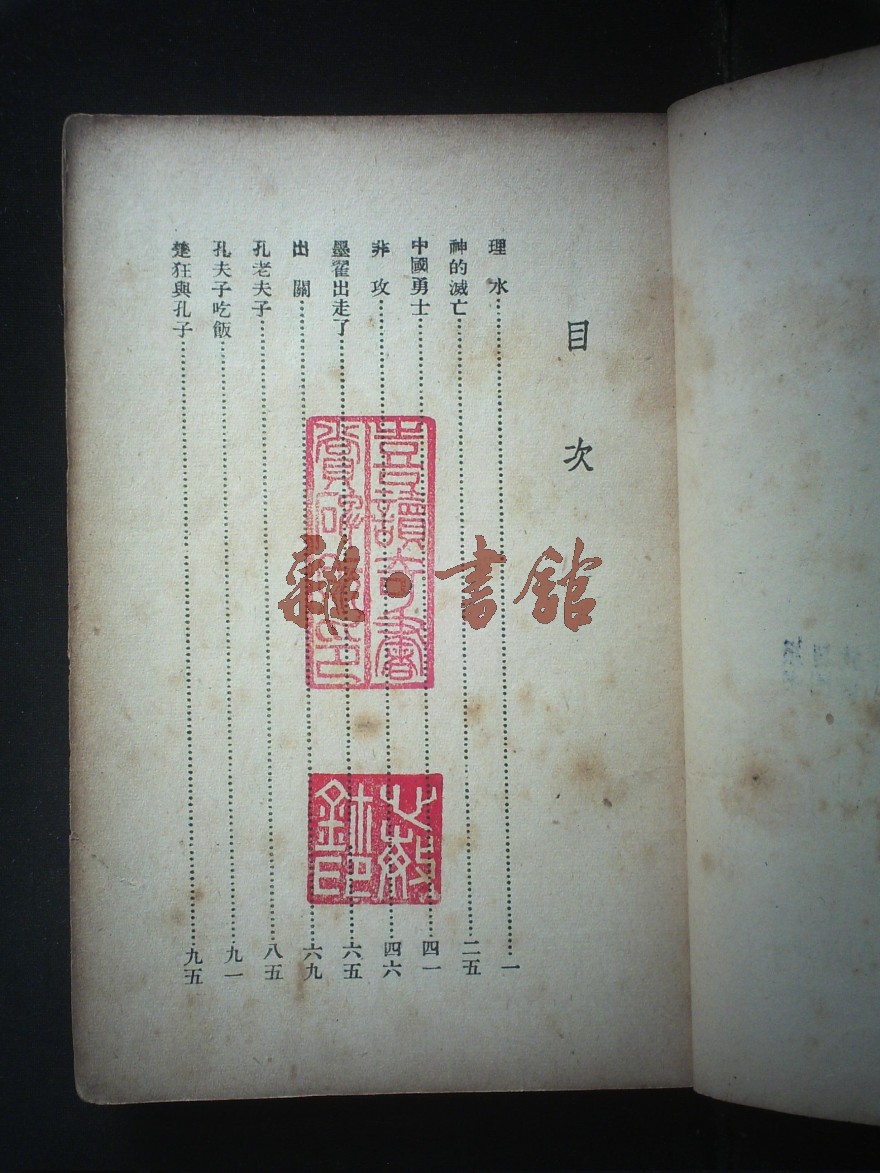 目次
理水……一
神的滅亡……二五
中國勇士……四一
非攻……四六
墨翟出走了……六五
出關……六九
孔老夫子……八五
孔夫子吃飯……九一
楚狂與孔子……九五
雜·書館
喜讀奇書